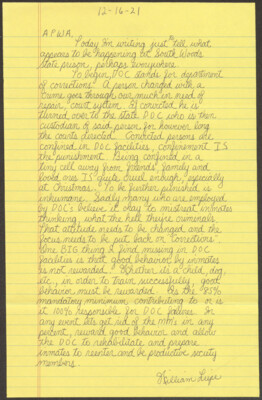 12-16-21
A.P.W.A,
Today I'm writing just to tell what
appears to be happening at South Woods
state prison, perhaps everywhere.
To begin, DOC stands for department
of corrections. A person charged with a
crime goes through our much in need of
repair, court system. If convicted, he is
turned over to the state DOC, who is then
custodian of said person, for however long
the courts directed. Convicted persons are
confined in DOC facilities, confinement IS
the punishment. Being confined in a
tiny cell away from friends, family and
loved ones IS quite cruel enough, especially
at Christmas. To be further punished is
inhumane. Sadly many who are employed
by DOC's believe it okay to mistreat inmates
thinking, what the hell they're criminals.
That attitude needs to be changed and the
focus needs to be put back on "corrections"
One BIG thing I find missing in DOC
facilities is that good behavior by inmates
is not rewarded! Whether it's a child, dog,
etc., in order to train successfully, good
behavior must be rewarded. The "85%"
mandatory minimum contributing to or is
it 100% responsible for DOC failures. In
any event let's get rid of the MM's in any
percent, reward good behavior and allow
the DOC to rehabilitate and prepare
inmates to reenter and be productive society
members.
William